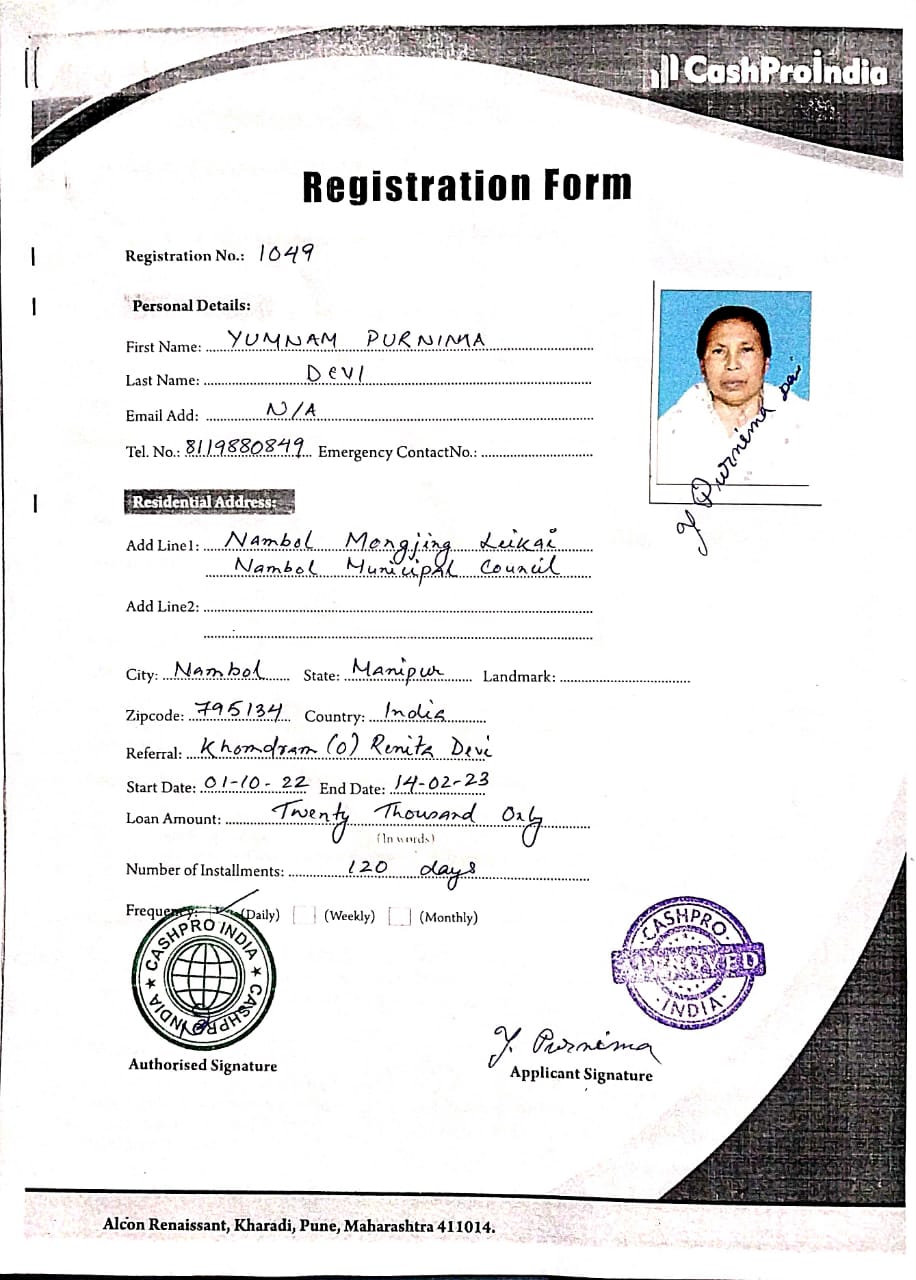 CashProIndia
Registration Form
Registration No.: 1049
Personal Details:
First Name: YUMNAM PURNIMA
Last Name: DEVI
Email Add: N/A
Tel. No.: 8119880849 Emergency ContactNo.:
Y Purnima Devi
Residential Address:
Add Line1: Nambol Mongjing Leikai
Nambol Municipal Council
Add Line2:
City: Nambol State: Manipur Landmark:
Zipcode: 795134 Country: India
Referral: Khomdram (O) Renita Devi
Start Date: 01-10-22 End Date: 14-02-23
Loan Amount: Twenty Thousand Only
(In words)
Number of Installments: 120 days
Frequency: (Daily) (Weekly) (Monthly)
★ CASHPRO INDIA ★ CASHPRO INDIA
CASHPRO
APPROVED
INDIA
Y. Purnima
Authorised Signature
Applicant Signature
Alcon Renaissant, Kharadi, Pune, Maharashtra 411014.